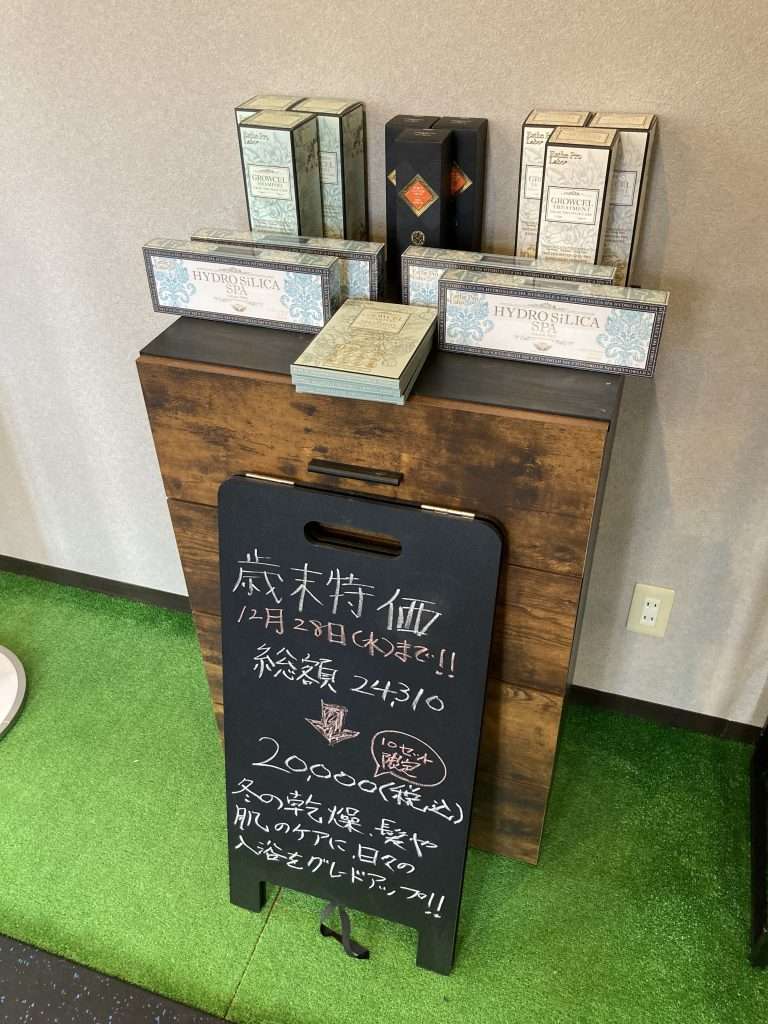 Esthe Pro
Labo
GROWCEL
SHAMPOO
Esthe Pro
Labo
GROWCEL
TREATMENT
HYDRO SiLICA
SPA
HYDRO SiLICA
SPA
歳末特価
12月28日(水)まで!!
総額 24,310
10セット
限定
20,000(税込)
冬の乾燥、髪や
肌のケアに、日々の
入浴をグレードアップ!!